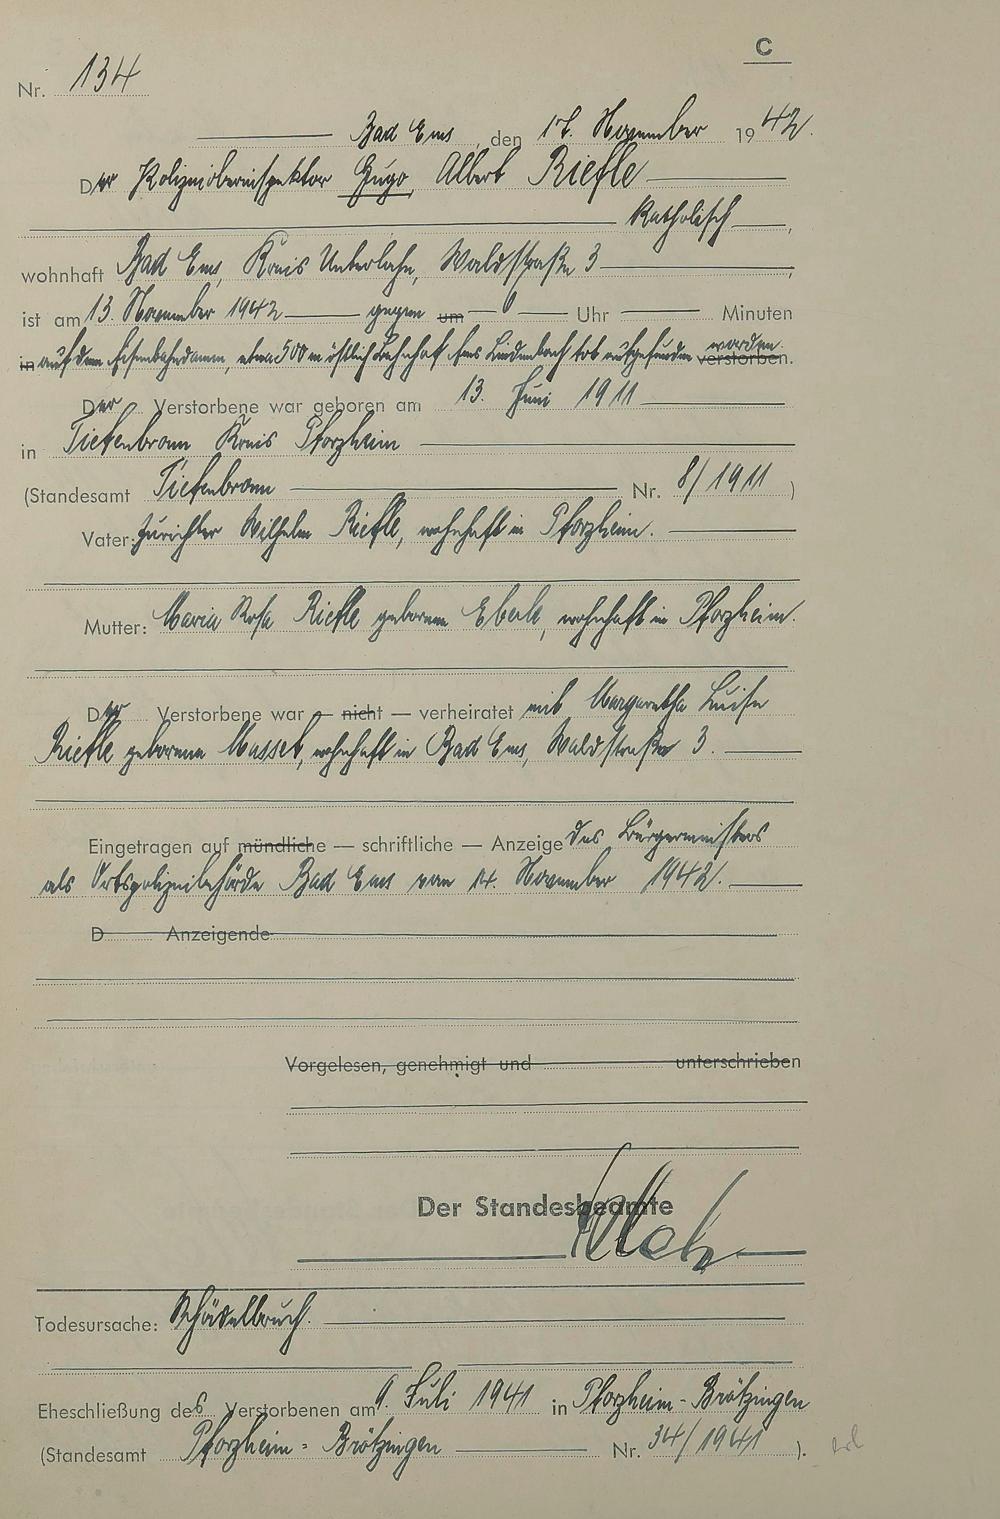 C
Nr. 134
Bad Ems, den 17. November 1942.
Der Polizeiobernispektor Hugo Albert Riefle
katholisch,
wohnhaft Bad Ems, Kreis Unterlahn, Waldstraße 3,
ist am 13. November 1942 gegen um 0 Uhr Minuten
in auf dem Eisenbahndamm, etwa 500 m östlich Bahnhof Ems Lindenbach tot aufgefunden worden verstorben.
Der Verstorbene war geboren am 13. Juni 1911
in Tiefenbronn Kreis Pforzheim
(Standesamt Tiefenbronn Nr. 8/1911)
Vater: Zurichter Wilhelm Riefle, wohnhaft in Pforzheim.
Mutter: Maria Rosa Riefle geborene Eberle, wohnhaft in Pforzheim.
Der Verstorbene war — nicht — verheiratet mit Margaretha Luise
Riefle geborene Musset, wohnhaft in Bad Ems, Waldstraße 3.
Eingetragen auf mündliche — schriftliche — Anzeige des Bürgermeisters
als Ortspolizeibehörde Bad Ems vom 14. November 1942.
D Anzeigende
Vorgelesen, genehmigt und unterschrieben
Der Standesbeamte
Todesursache: Schädelbruch.
Eheschließung des Verstorbenen am 9. Juli 1941 in Pforzheim-Brötzingen
(Standesamt Pforzheim-Brötzingen Nr. 34/1941).